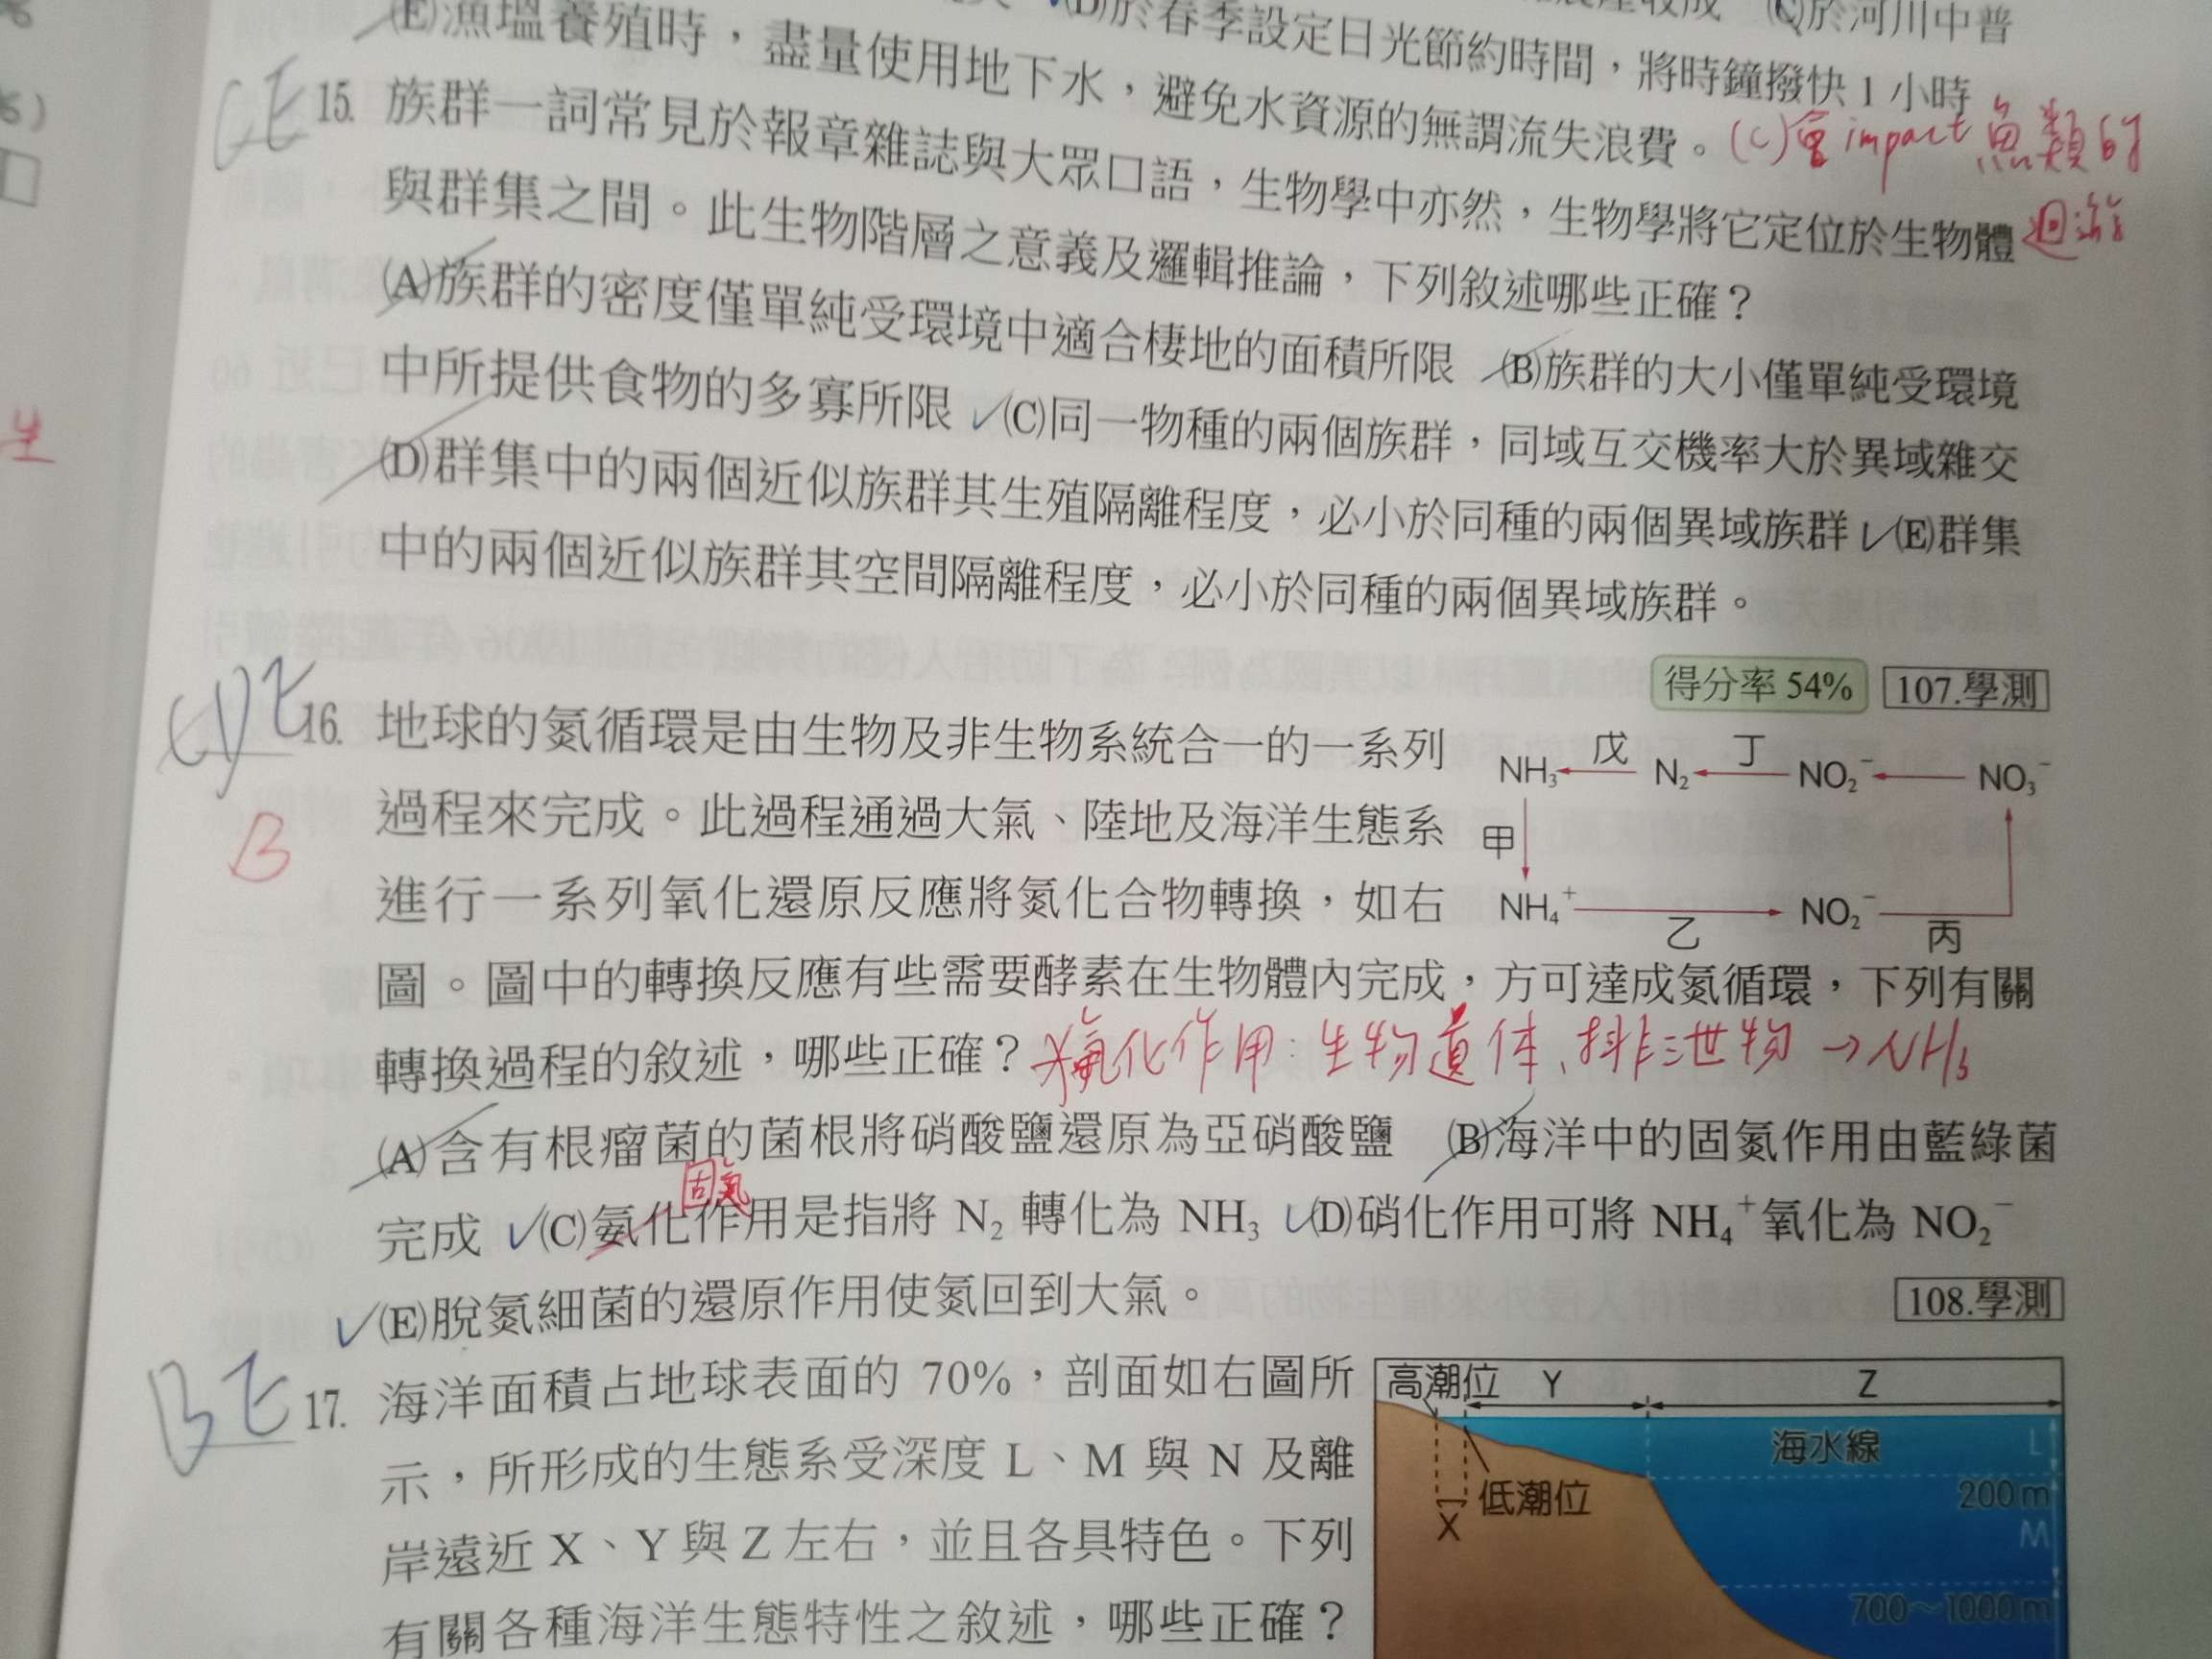 (D)於春季設定日光節約時間，將時鐘撥快 1 小時
(C)於河川中普
(E)漁塭養殖時，盡量使用地下水，避免水資源的無謂流失浪費。
(C)會 impact 魚類的
迴游
CE
15. 族群一詞常見於報章雜誌與大眾口語，生物學中亦然，生物學將它定位於生物體
與群集之間。此生物階層之意義及邏輯推論，下列敘述哪些正確？
(A)族群的密度僅單純受環境中適合棲地的面積所限 (B)族群的大小僅單純受環境
中所提供食物的多寡所限 ✓(C)同一物種的兩個族群，同域互交機率大於異域雜交
(D)群集中的兩個近似族群其生殖隔離程度，必小於同種的兩個異域族群 ✓(E)群集
中的兩個近似族群其空間隔離程度，必小於同種的兩個異域族群。
得分率 54% 107.學測
CDE
B
16. 地球的氮循環是由生物及非生物系統合一的一系列
過程來完成。此過程通過大氣、陸地及海洋生態系
進行一系列氧化還原反應將氮化合物轉換，如右
圖。圖中的轉換反應有些需要酵素在生物體內完成，方可達成氮循環，下列有關
轉換過程的敘述，哪些正確？
NH₃ 戊 N₂ 丁 NO₂⁻ NO₃⁻
甲
NH₄⁺ 乙 NO₂⁻ 丙
氨化作用：生物遺体、排泄物 → NH₃
(A)含有根瘤菌的菌根將硝酸鹽還原為亞硝酸鹽 (B)海洋中的固氮作用由藍綠菌
固氮
完成 ✓(C)氨化作用是指將 N₂ 轉化為 NH₃ ✓(D)硝化作用可將 NH₄⁺氧化為 NO₂⁻
✓(E)脫氮細菌的還原作用使氮回到大氣。
108.學測
BE
17. 海洋面積占地球表面的 70%，剖面如右圖所
示，所形成的生態系受深度 L、M 與 N 及離
岸遠近 X、Y 與 Z 左右，並且各具特色。下列
有關各種海洋生態特性之敘述，哪些正確？
高潮位 Y Z
海水線 L
低潮位 200 m
X M
700～1000 m
生